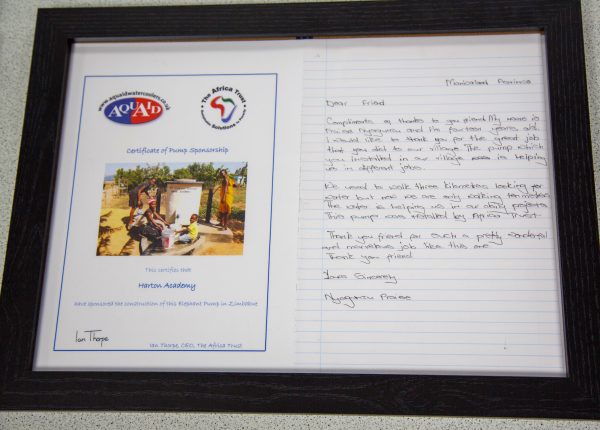 www.aquaidwatercoolers.co.uk
AQUAID
The Africa Trust
Solutions
Certificate of Pump Sponsorship
This certifies that
Harton Academy
have sponsored the construction of this Elephant Pump in Zimbabwe
Ian Thorpe
Ian Thorpe, CEO, The Africa Trust
Manicaland Province
Dear Friend
Compliments of thanks to you friend. My name is
Praise and I'm fourteen years old.
I would like to thank you for the great job
that you did to our village. The pump which
you installed in our village is helping
us in different jobs.
We used to walk three kilometres looking for
water but now we are only walking ten metres
The water is helping us in our daily projects
This pump was installed by Africa Trust.
Thank you friend for such a pretty wonderful
and marvelous job like this one
Thank you friend
Yours Sincerely
Praise